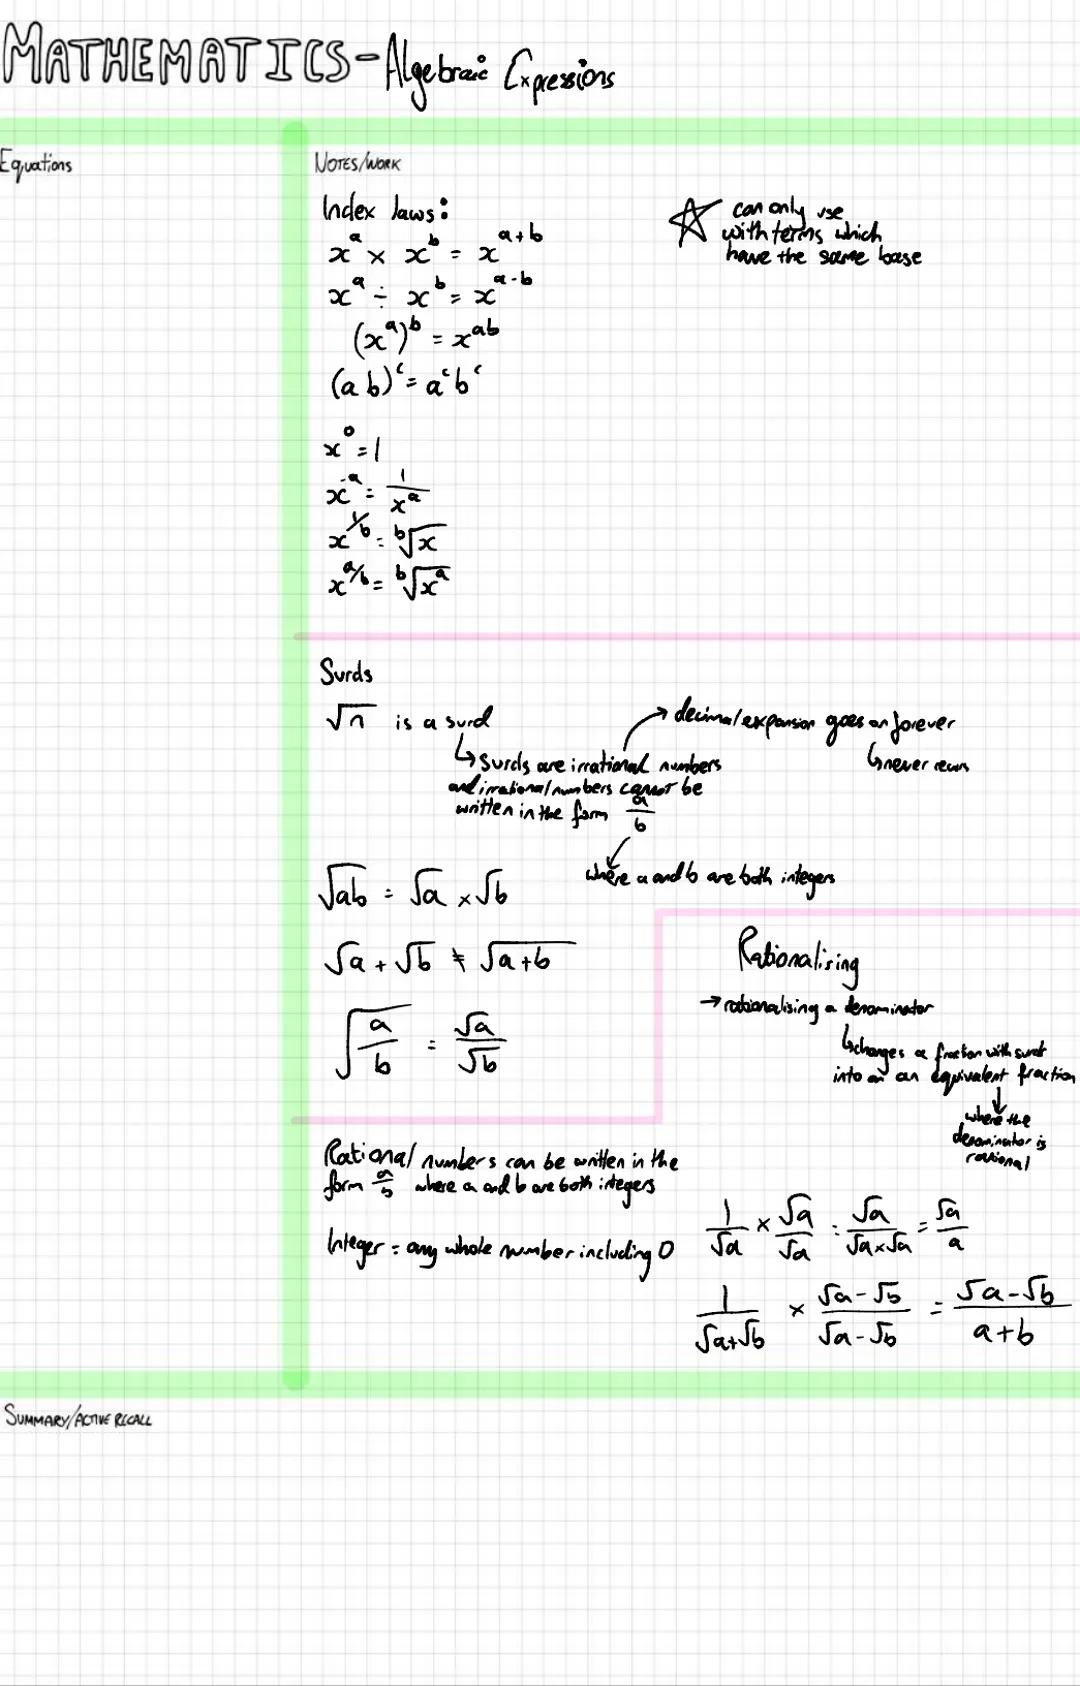 MATHEMATICS - Algebraic Expressions
Equations
NOTES/WORK
Index laws:
x^a × x^b = x^(a+b)
x^a ÷ x^b = x^(a-b)
(x^a)^b = x^(ab)
(ab)^c = a^c b^c
x^0 = 1
x^-a = 1/x^a
x^(1/b) = ᵇ√x
x^(a/b) = ᵇ√(x^a)
☆ can only use
with terms which
have the same base
Surds
√n is a surd
↳ Surds are irrational numbers
and irrational numbers cannot be
written in the form a/b
→ decimal expansion goes on forever
↳ never recurs
where a and b are both integers
√ab = √a × √b
√a + √b ≠ √(a+b)
√(a/b) = √a/√b
Rationalising
→ rationalising a denominator
↳ changes a fraction with surd
into an an equivalent fraction
↓
where the
denominator is
rational
Rational numbers can be written in the
form a/b where a and b are both integers
Integer = any whole number including 0
1/√a × √a/√a = √a/(√a×√a) = √a/a
1/(√a+√b) × (√a-√b)/(√a-√b) = (√a-√b)/(a+b)
SUMMARY/ACTIVE RECALL